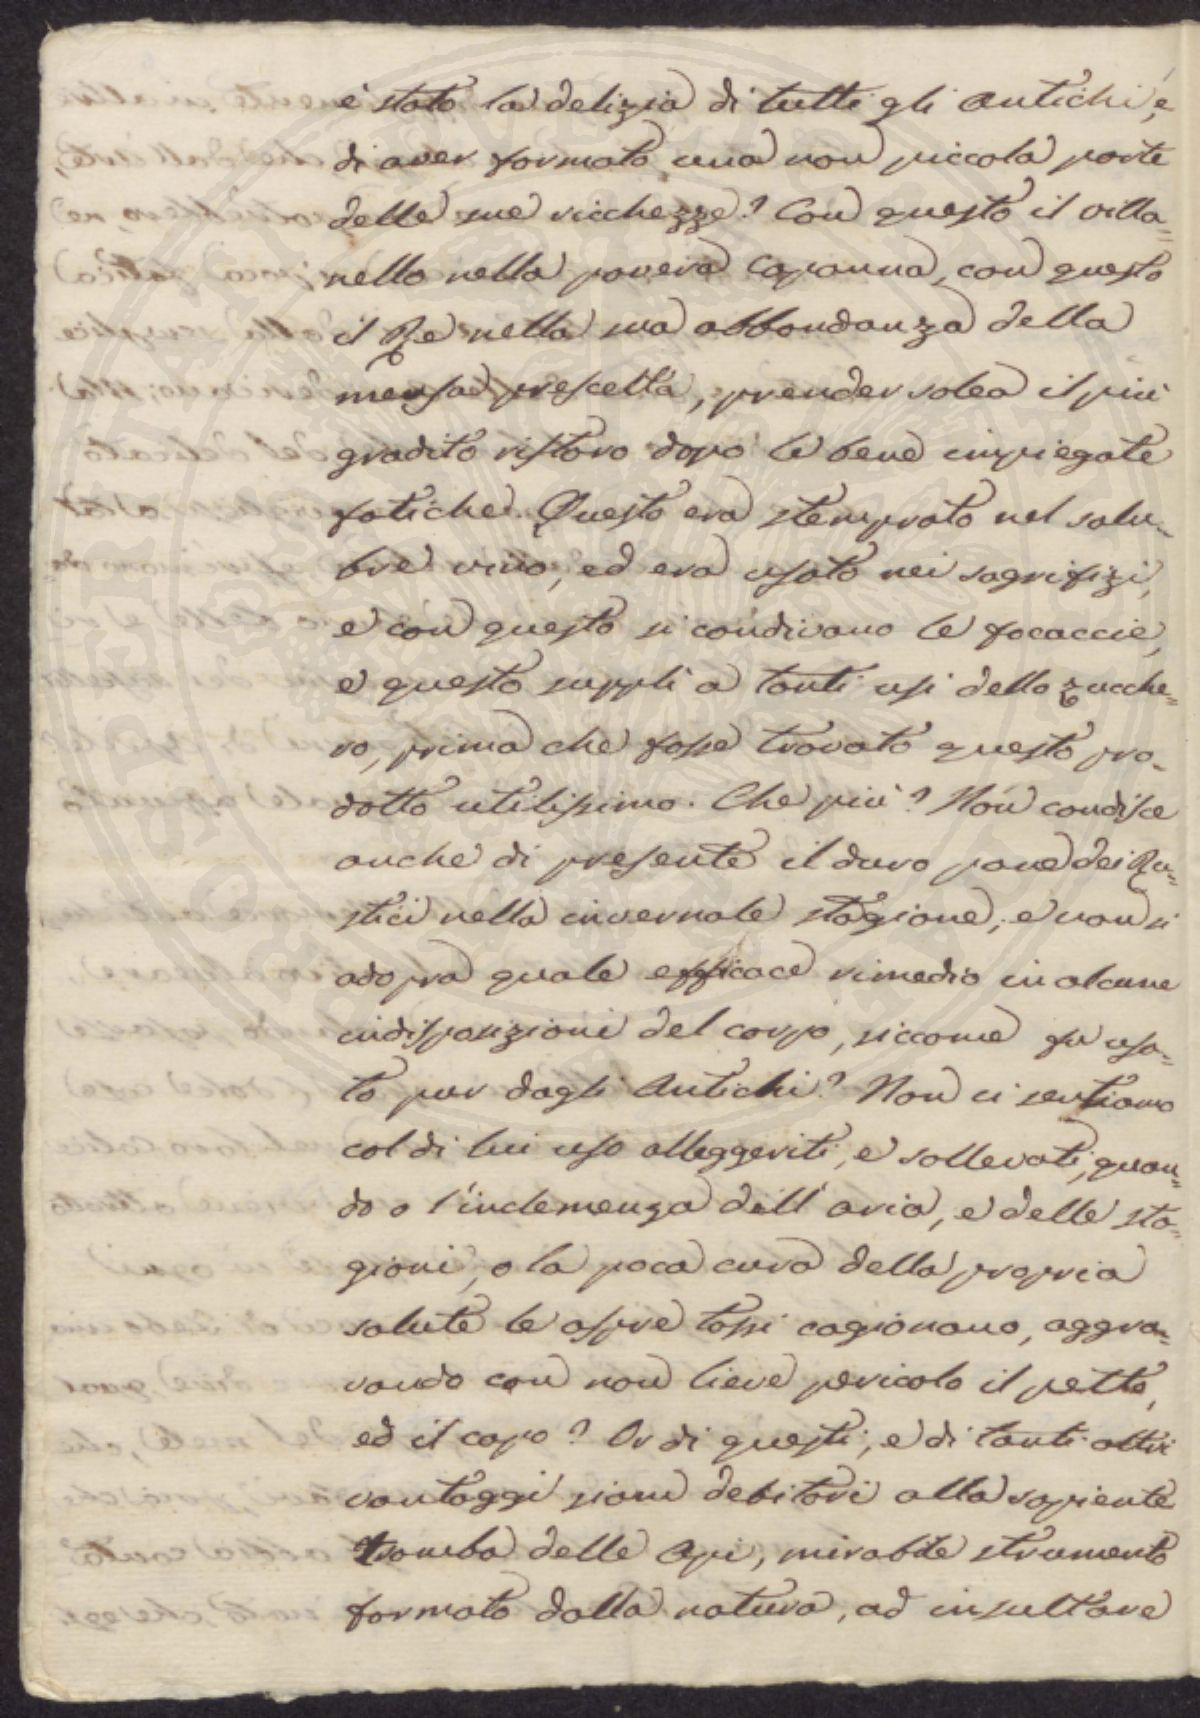 è stato la delizia di tutti gli Antichi, e
di aver formato una non piccola parte
delle sue ricchezze? Con questo il villa=
nello nella povera Capanna, con questo
il Re nella sua abbondanza della
mensa prescelta, prender solea il più
gradito ristoro dopo le bene impiegate
fatiche. Questo era stemprato nel salu=
bre vino, ed era usato nei sagrifizi,
e con questo si condivano le focaccie,
e questo supplì a tanti usi dello zucche=
ro, prima che fosse trovato questo pro=
dotto utilissimo. Che più? Non condisce
anche di presente il duro pane dei Ru=
stici nella invernale stagione, e non si
adopra quale efficace rimedio in alcune
indisposizioni del corpo, siccome fu usa=
to pur dagli Antichi? Non ci sentiamo
col di lui uso alleggeriti, e sollevati, quan=
do o l'inclemenza dell'aria, e delle sta=
gioni, o la poca cura della propria
salute le aspre tossi cagionano, aggra=
vando con non lieve pericolo il petto,
ed il capo? Or di questi, e di tanti altri
vantaggi siam debitori alla sapiente
tromba delle Api, mirabile strumento
formato dalla natura, ad insultare